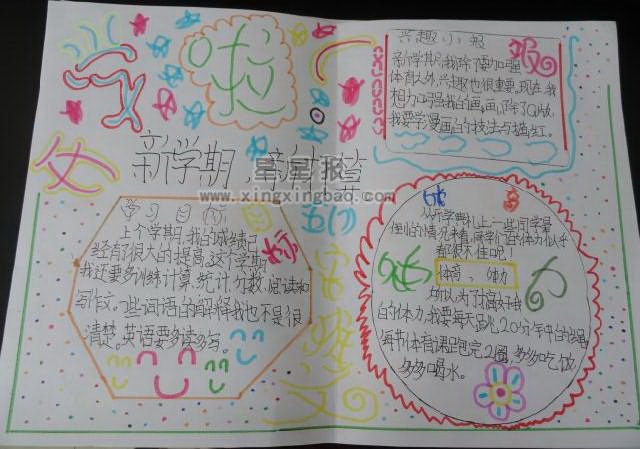 新学期,新打算
星星报
www.xingxingbao.com
兴趣小报
新学期,我除了要加强
体育大外,兴趣也很重要,现在我
想力口强我的画,画了除了Q版,
我要学漫画的技法与描红。
学习目标
上个学期,我的成绩已
经有了很大的提高,这个学期
我还要多训练计算,统计,分数,阅读和
写作文。一些词语的解释我也不是很
清楚。英语要多读多写。
从开学典礼上一些同学晕
倒的情况来看,同学们的体力似乎
都很不住呢!
体育、体力
所以,为了提高好
的体力,我要每天跑20分
每节体育课跑完2圈,多多吃饭
多多喝水。